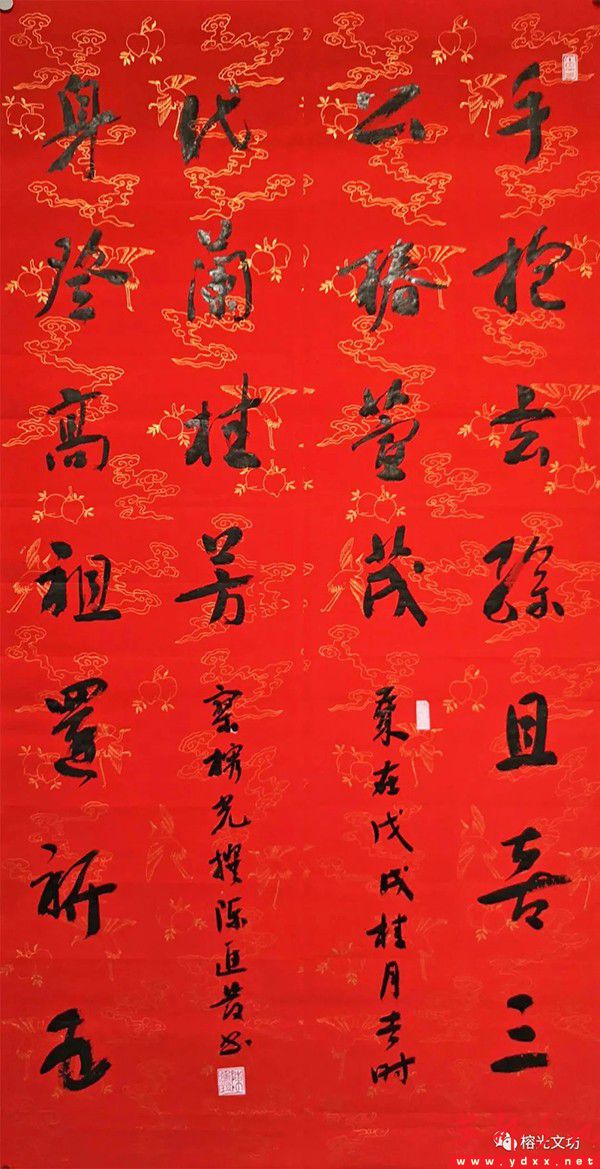 手抱玄孫且喜三
公椿萱茂
歲在戊戌桂月吉时
身登高祖還祈五
代蘭桂芳
蔡榕光撰陈书
榕光文坊
www.ydxx.net